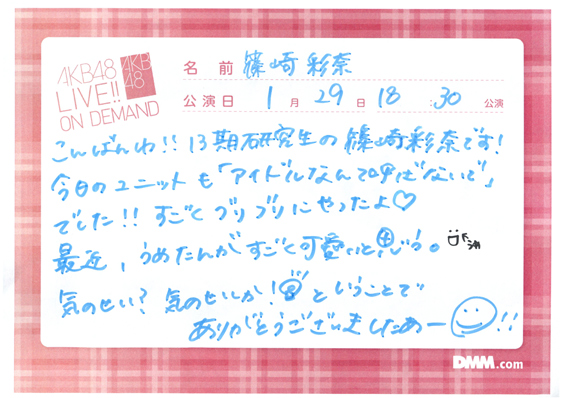 AKB48
LIVE!!
ON DEMAND
AKB
48
名 前 篠崎 彩奈
公演日 1 月 29 日 18 :30 公演
こんばんわ!! 13期研究生の篠崎彩奈です!
今日のユニットも「アイドルなんて呼ばないで」
でした!! すごくブリブリにやったよ♡
最近、うめたんがすごく可愛いと思う。
気のせい? 気のせいか! ということで
ありがとうございましたあー !!
DMM.com